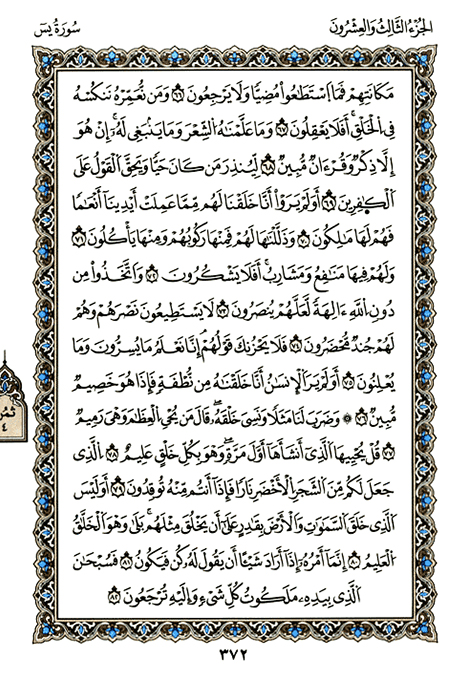 الجزء الثالث والعشرون
سورة يس
مَكَانَتِهِمْ فَمَا اَسْتَطَٰعُواْ مُضِيّٗا وَلَا يَرْجِعُونَ ٦٦ وَمَن نُّعَمِّرْهُ نَنكُسْهُ
فِي اِلْخَلْقِ أَفَلَا تَعْقِلُونَ ٦٧ وَمَا عَلَّمْنَٰهُ اُلشِّعْرَ وَمَا يَنۢبَغِي لَهُۥ إِنْ هُوَ
إِلَّا ذِكْرٞ وَقُرْءَانٞ مُّبِينٞ ٦٨ لِّتُنذِرَ مَن كَانَ حَيّٗا وَيَحِقَّ اَلْقَوْلُ عَلَى
اَلْكٰ۪فِرِينَ ٦٩ أَوَلَمْ يَرَوَاْ اَنَّا خَلَقْنَا لَهُم مِّمَّا عَمِلَتَ اَيْدِينَا أَنْعَٰمٗا
فَهُمْ لَهَا مَٰلِكُونَ ٧٠ وَذَلَّلْنَٰهَا لَهُمْ فَمِنْهَا رَكُوبُهُمْ وَمِنْهَا يَاكُلُونَ ٧١
وَلَهُمْ فِيهَا مَنَٰفِعُ وَمَشَارِبُ أَفَلَا يَشْكُرُونَ ٧٢ وَاتَّخَذُواْ مِن
دُونِ اِللَّهِ ءَالِهَةٗ لَّعَلَّهُمْ يُنصَرُونَ ٧٣ لَا يَسْتَطِيعُونَ نَصْرَهُمْ وَهُمْ
لَهُمْ جُندٞ مُّحْضَرُونَ ٧٤ فَلَا يُحْزِنكَ قَوْلُهُمُۥ إِنَّا نَعْلَمُ مَا يُسِرُّونَ وَمَا
يُعْلِنُونَ ٧٥ أَوَلَمْ يَرَ اَلْإِنسَٰنُ أَنَّا خَلَقْنَٰهُ مِن نُّطْفَةٖ فَإِذَا هُوَ خَصِيمٞ
مُّبِينٞ ٧٦ ۞ وَضَرَبَ لَنَا مَثَلٗا وَنَسِيَ خَلْقَهُۥ قَالَ مَن يُحْيِ اِلْعِظَٰمَ وَهِيَ رَمِيمٞ
٧٧ قُلْ يُحْيِيهَا اَلَّذِي أَنشَأَهَا أَوَّلَ مَرَّةٖ وَهُوَ بِكُلِّ خَلْقٍ عَلِيمٌ ٧٨ اِلَّذِي
جَعَلَ لَكُم مِّنَ اَلشَّجَرِ اِلْأَخْضَرِ نَارٗا فَإِذَا أَنتُم مِّنْهُ تُوقِدُونَ ٧٩ أَوَلَيْسَ
اَلَّذِي خَلَقَ اَلسَّمَٰوَٰتِ وَالْأَرْضَ بِقَٰدِرٍ عَلَىٰ أَنْ يَّخْلُقَ مِثْلَهُم بَلَىٰ وَهُوَ اَلْخَلَّٰقُ
اُلْعَلِيمُ ٨٠ إِنَّمَا أَمْرُهُۥ إِذَا أَرَادَ شَيْـٔاً أَنْ يَّقُولَ لَهُۥ كُن فَيَكُونُ ٨١ فَسُبْحَٰنَ
اَلَّذِي بِيَدِهِۦ مَلَكُوتُ كُلِّ شَيْءٖ وَإِلَيْهِ تُرْجَعُونَ ٨٢
ثمن
٤
٣٧٢